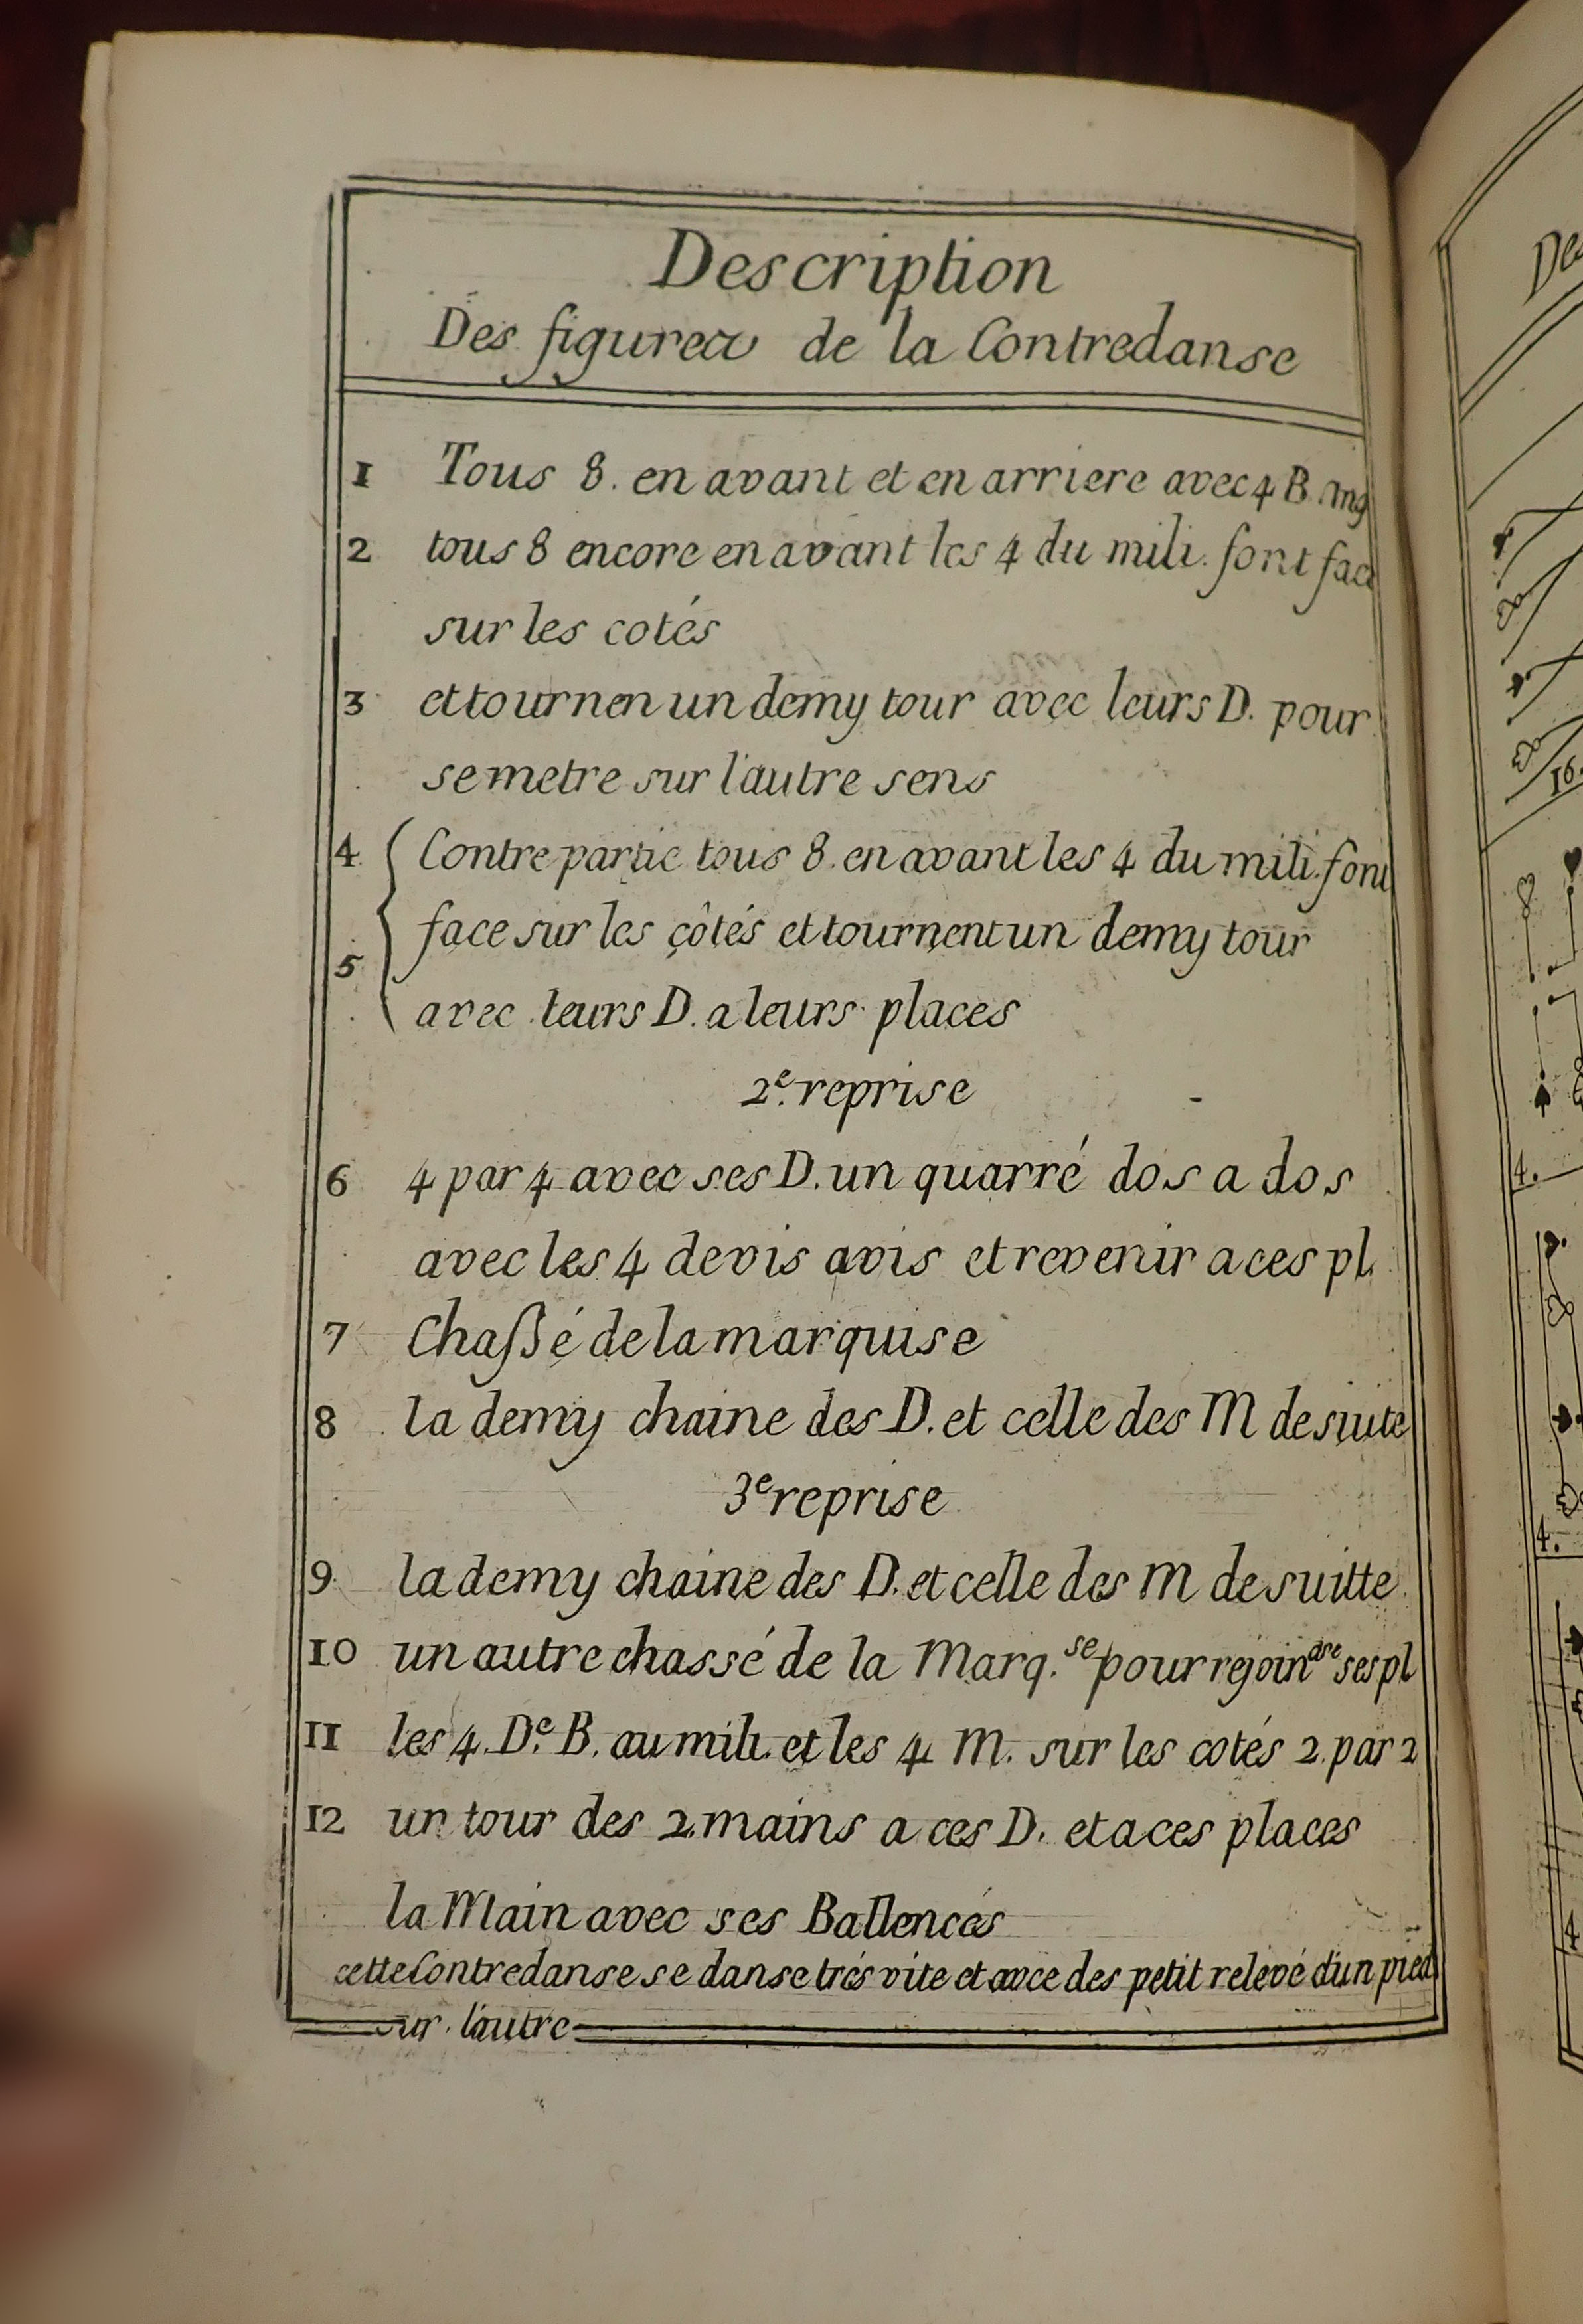 Description
Des figures de la Contredanse
1 Tous 8. en avant et en arriere avec 4 B. Ang
2 tous 8 encore en avant les 4 du mili. font face
sur les cotés
3 et tournen un demy tour avec leurs D. pour
se metre sur l'autre sens
4 Contre partie tous 8. en avant les 4 du mili. font
face sur les côtés et tournent un demy tour
5
avec leurs D. a leurs places
2e. reprise
6 4 par 4 avec ses D. un quarré dos a dos
avec les 4 de vis avis et revenir a ces pl.
7 Chassé de la marquise
8 la demy chaine des D. et celle des M de suite
3e reprise
9 la demy chaine des D. et celle des M de suitte
10 un autre chassé de la Marq.se pour rejoindre ses pl
11 les 4. De. B. au mili. et les 4 M. sur les cotés 2. par 2
12 un tour des 2 mains a ces D. et a ces places
la Main avec ses Ballencés
cette Contredanse se danse trés vite et avec des petit relevé d'un pied
sur l'autre
4.
16.
4.
4.
4